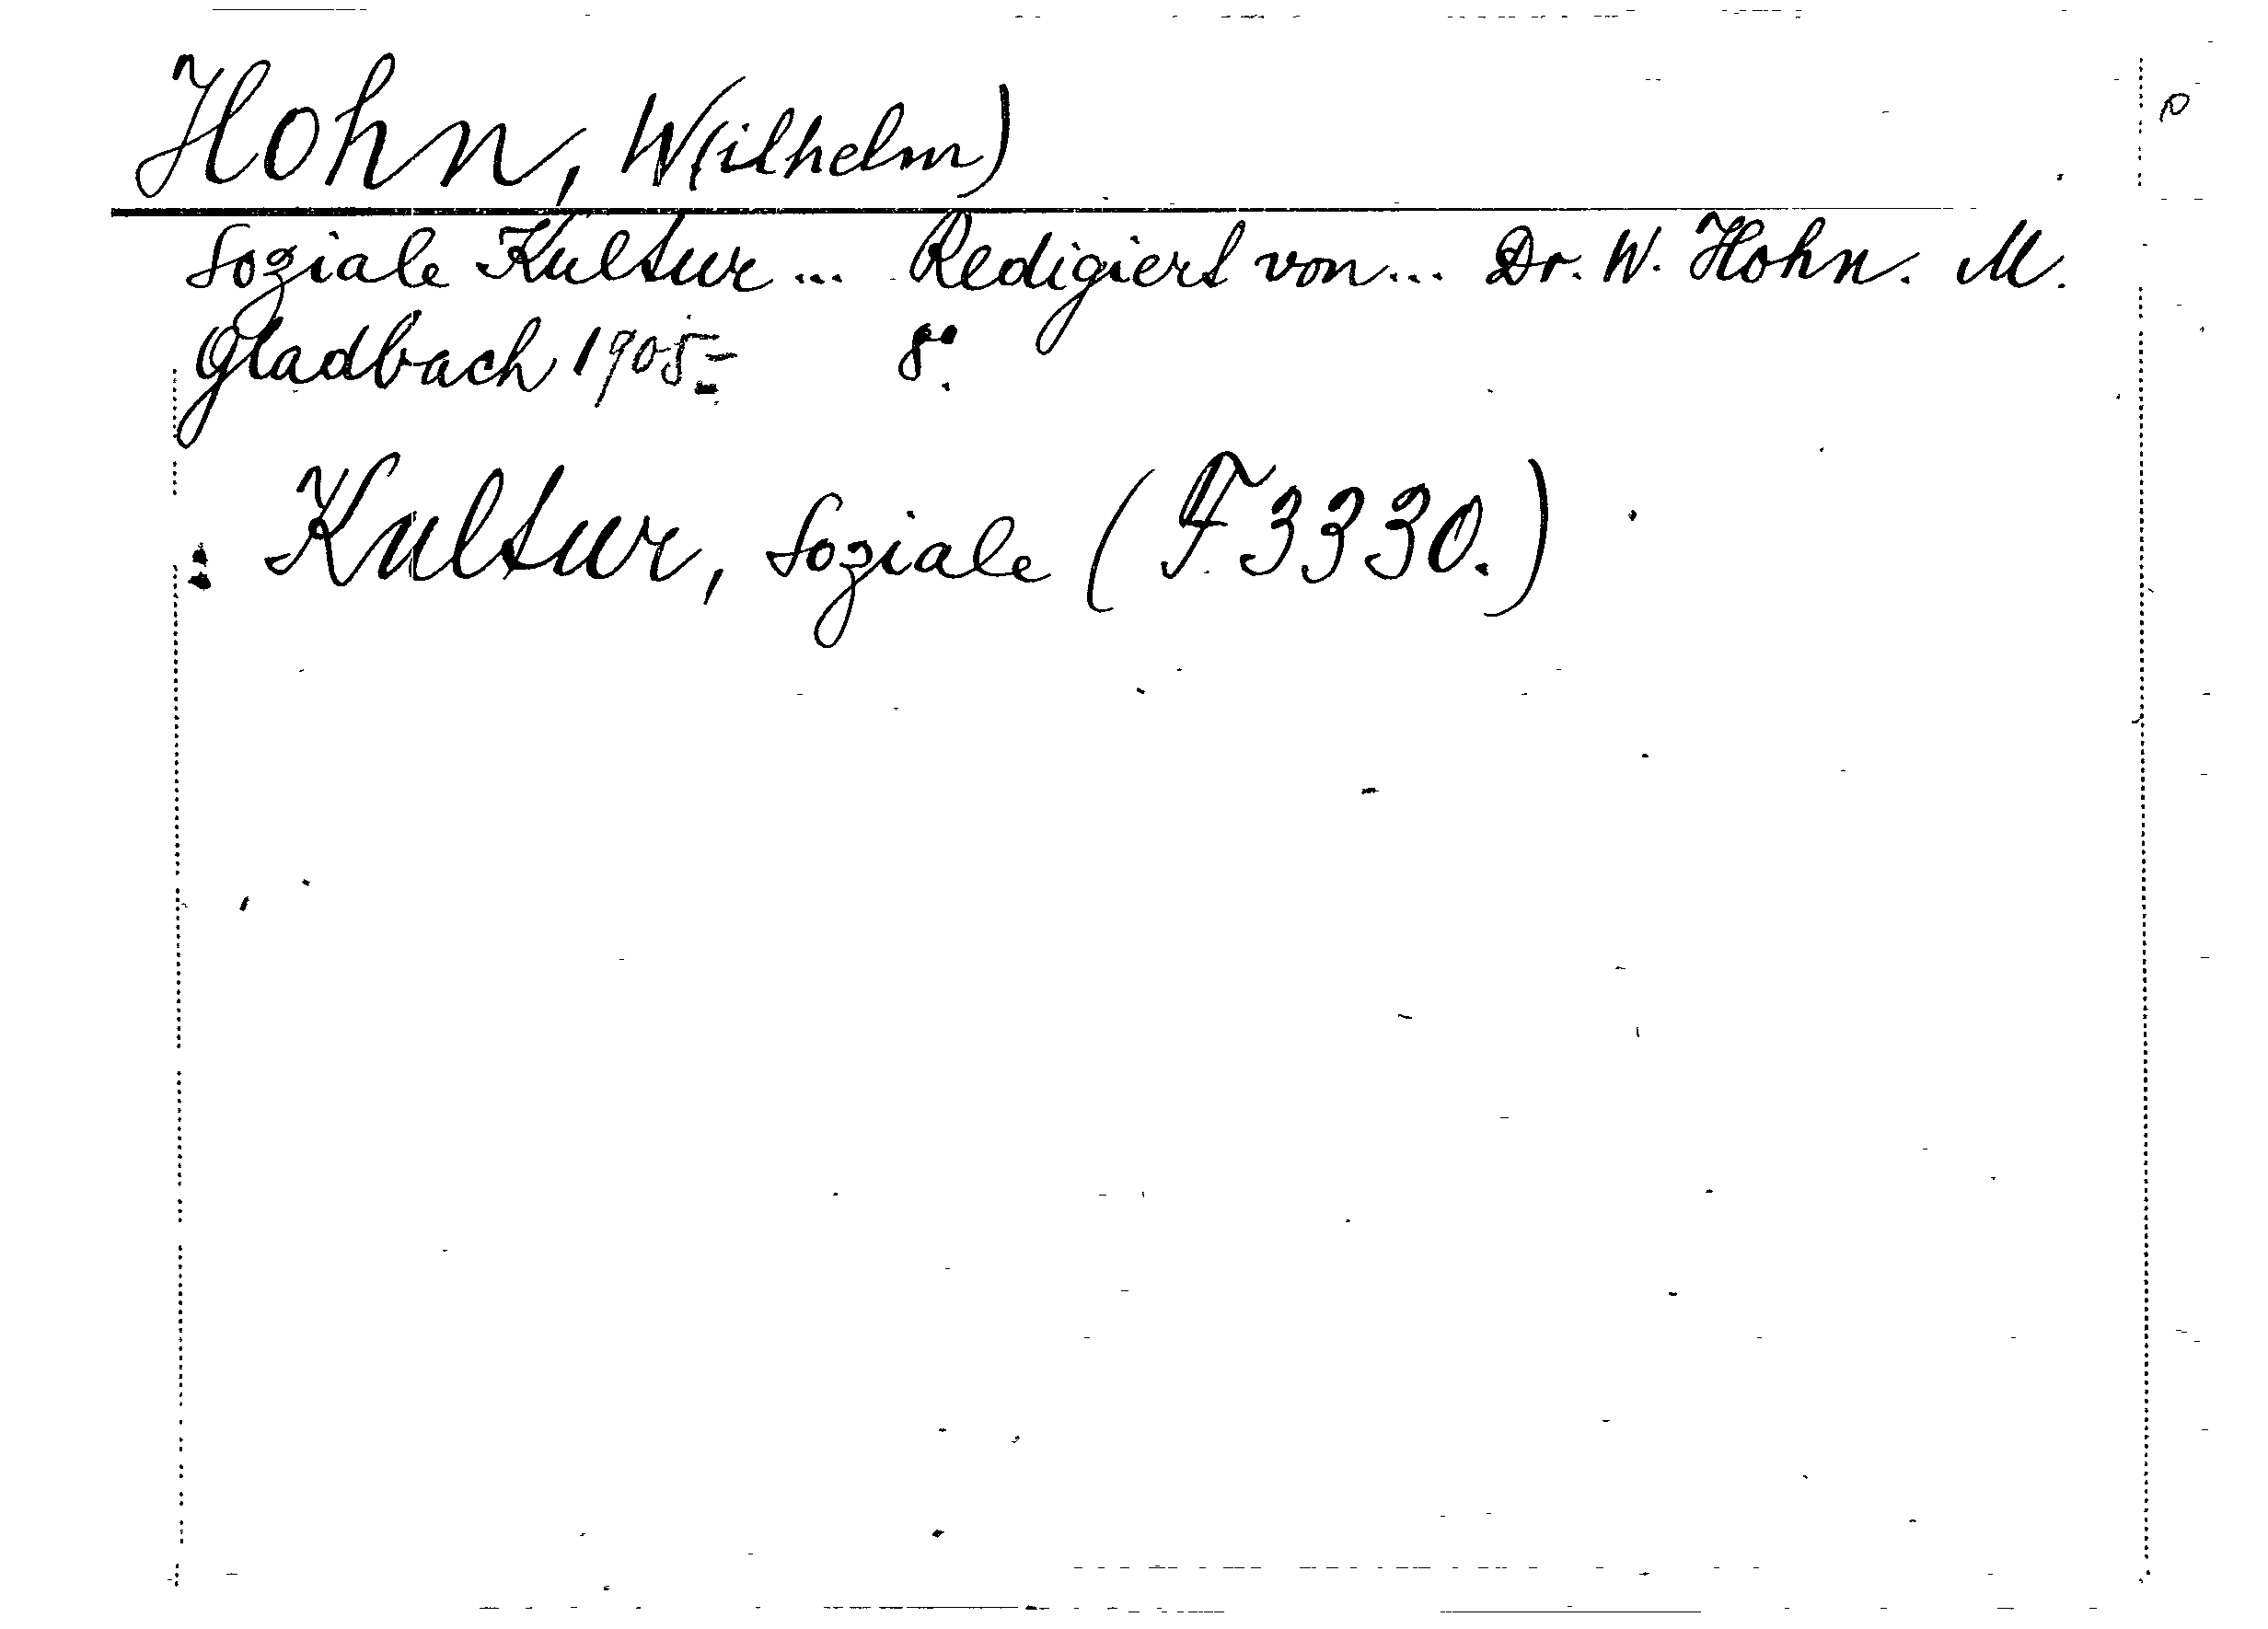 Hohn, W(ilhelm)
Soziale Kultur ... Redigiert von ... Dr. W. Hohn. M.
Gladbach 1905- 8°.
: Kultur, Soziale (F 3330.)